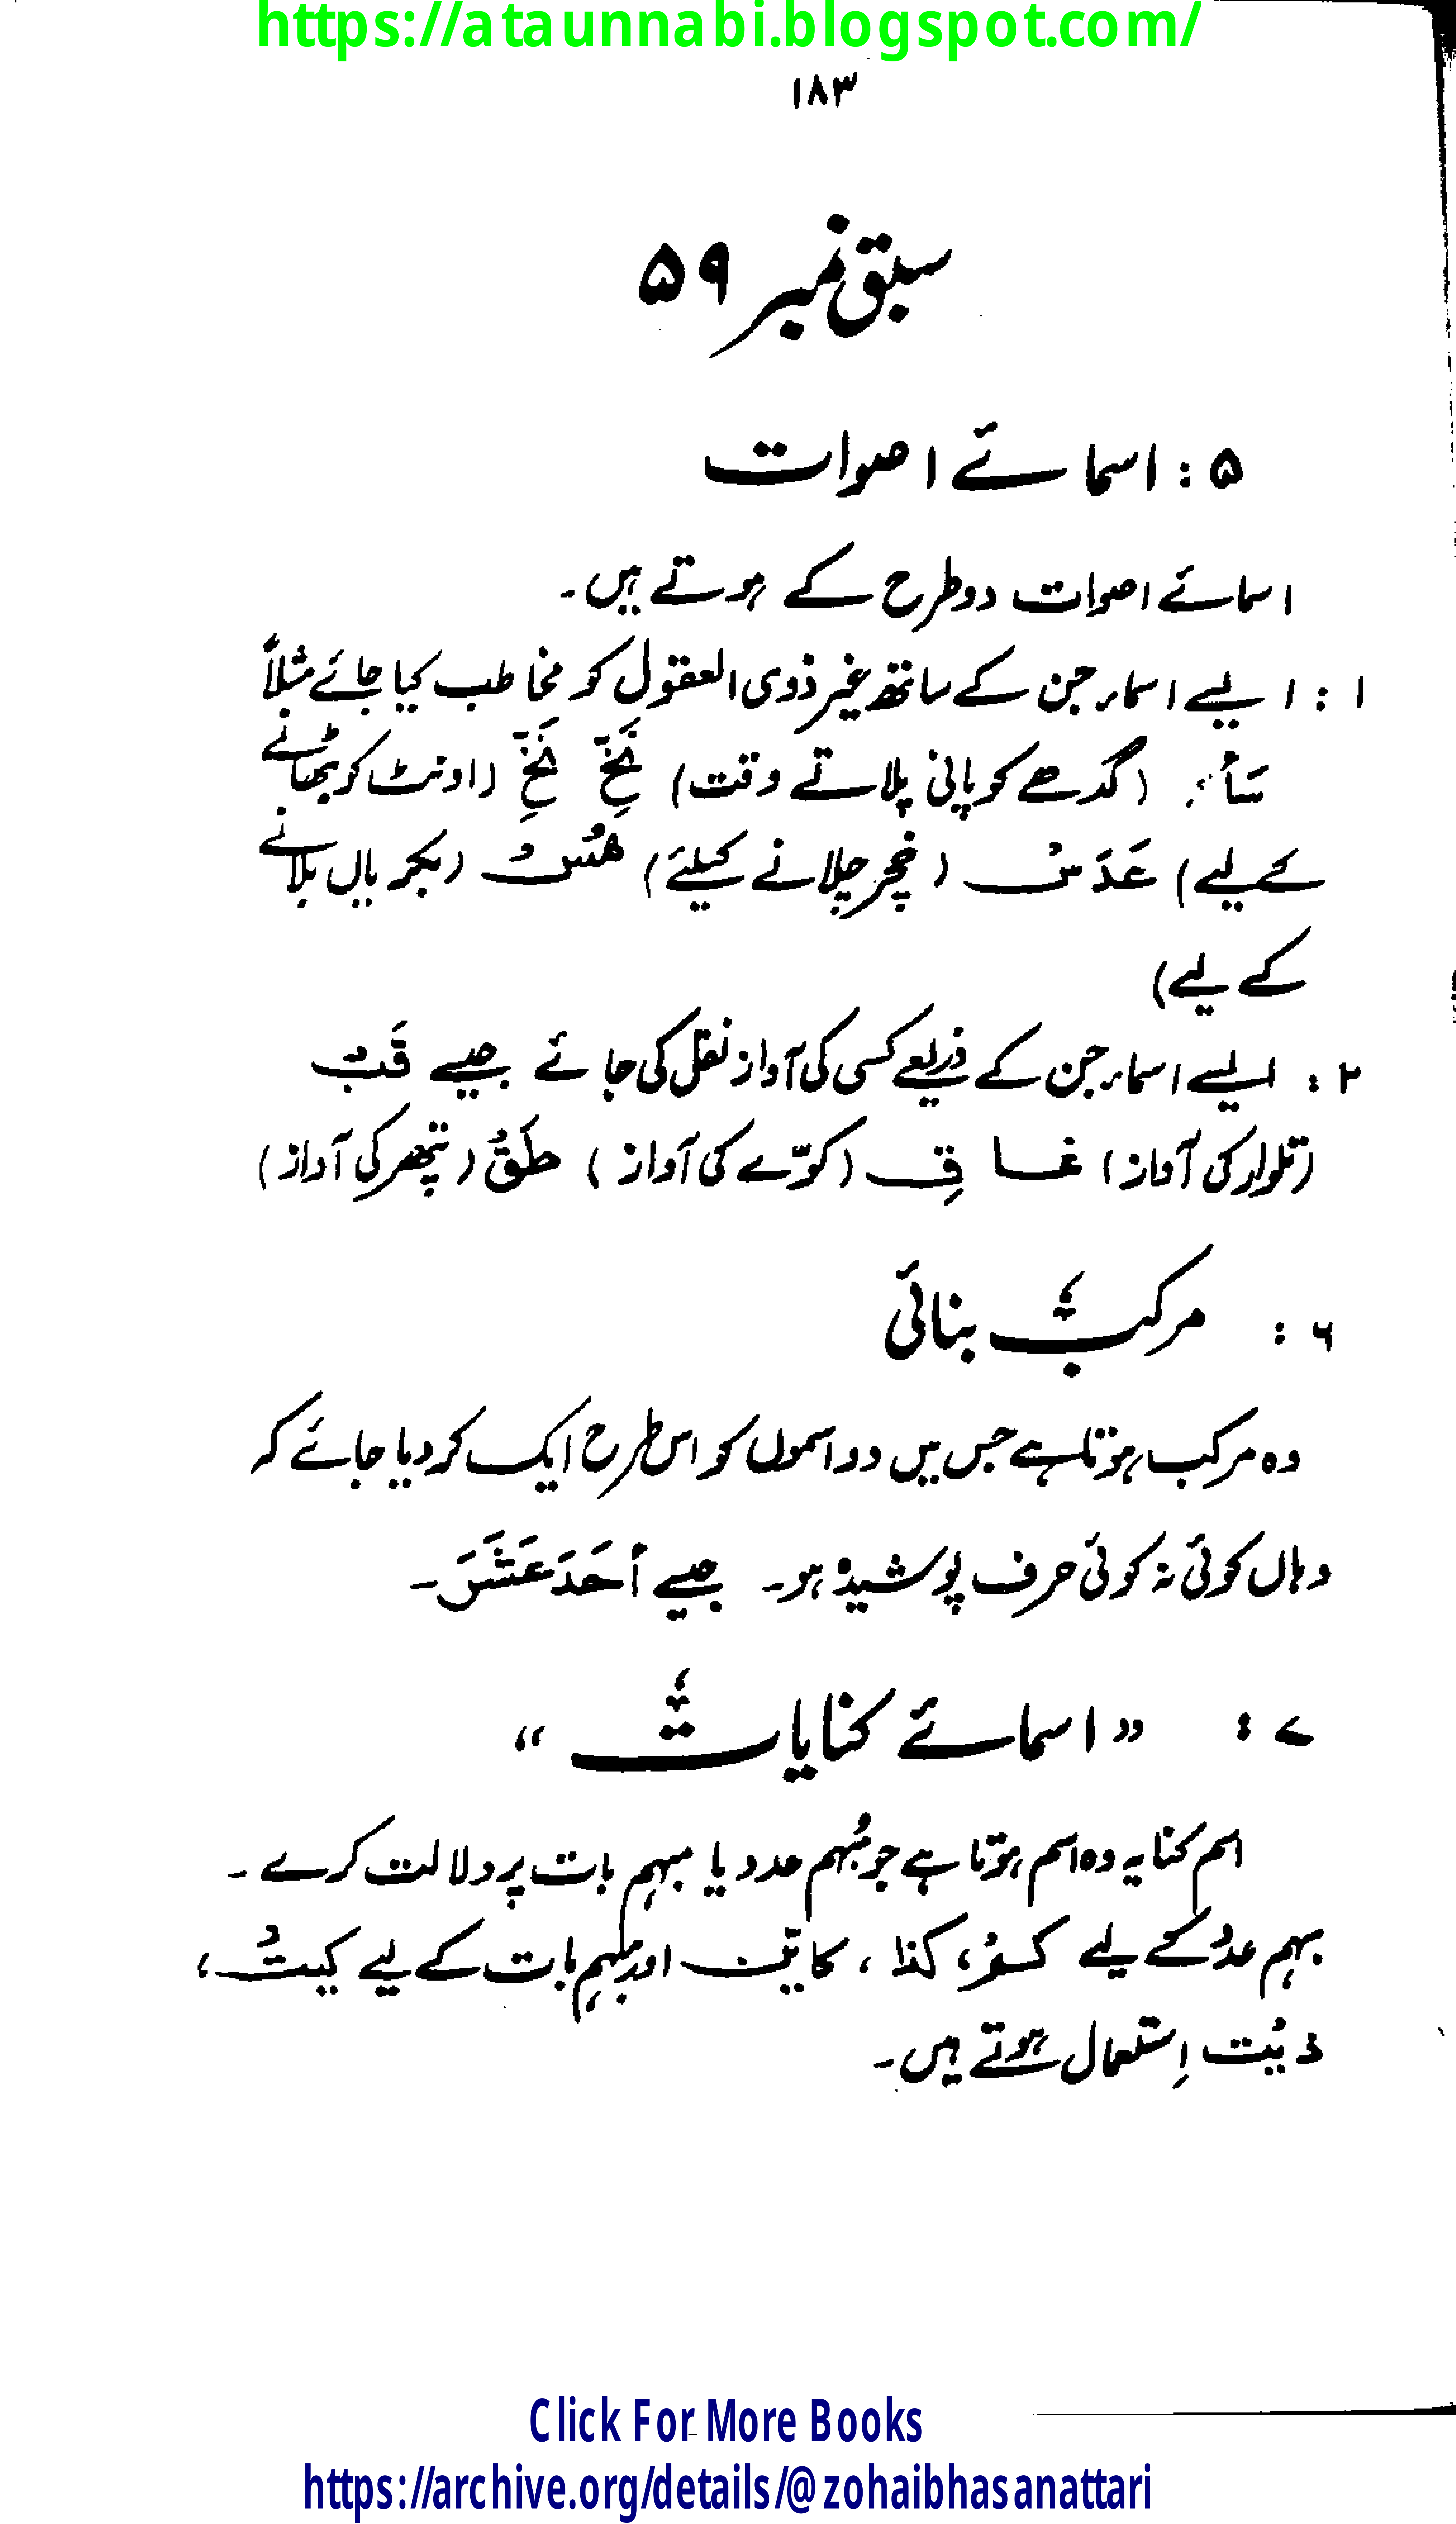 https://ataunnabi.blogspot.com/
۱۸۳
سبق نمبر ۵۹
۵ : اسمائے اصوات
اسمائے اصوات دو طرح کے ہوتے ہیں۔
۱ : ایسے اسمار جن کے ساتھ غیر ذوی العقول کو مخاطب کیا جائے مثلاً
(گدھے کو پانی پلاتے وقت) نَخِّ نَخِّ (اونٹ کو بٹھانے
کے لیے) عَدَسْ (خچر چلانے کیلئے) هُسْ (بکریاں بلانے
کے لیے)
۲ : ایسے اسمار جن کے ذریعے کسی کی آواز نقل کی جائے جیسے قَبْ
(تلوار کی آواز) غاقِ (کوّے کی آواز) طَقْ (پتھر کی آواز)
۶ : مرکب بنائی
وہ مرکب ہوتا ہے جس میں دو اسموں کو اس طرح ایک کر دیا جائے کہ
وہاں کوئی نہ کوئی حرف پوشیدہ ہو۔ جیسے أَحَدَ عَشَرَ۔
۷ : "اسمائے کنایات"
اسم کنایہ وہ اسم ہوتا ہے جو مُبہم عدد یا مبہم بات پر دلالت کرے۔
بہم عدد کے لیے کم، کذا، کایّن اور مبہم بات کے لیے کیت،
ذیت اِستعمال ہوتے ہیں۔
Click For More Books
https://archive.org/details/@zohaibhasanattari